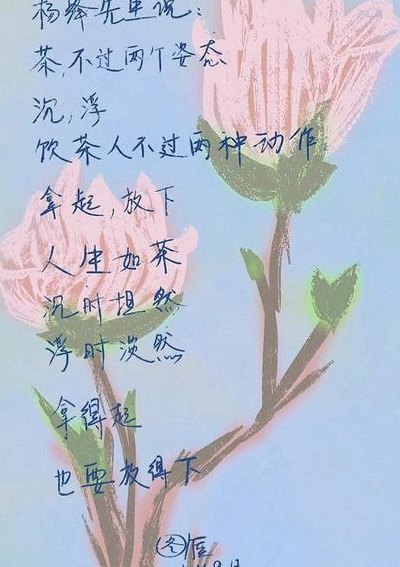 杨绛先生说:
茶,不过两个姿态
沉,浮
饮茶人不过两种动作
拿起,放下
人生如茶
沉时坦然
浮时淡然
拿得起
也要放得下